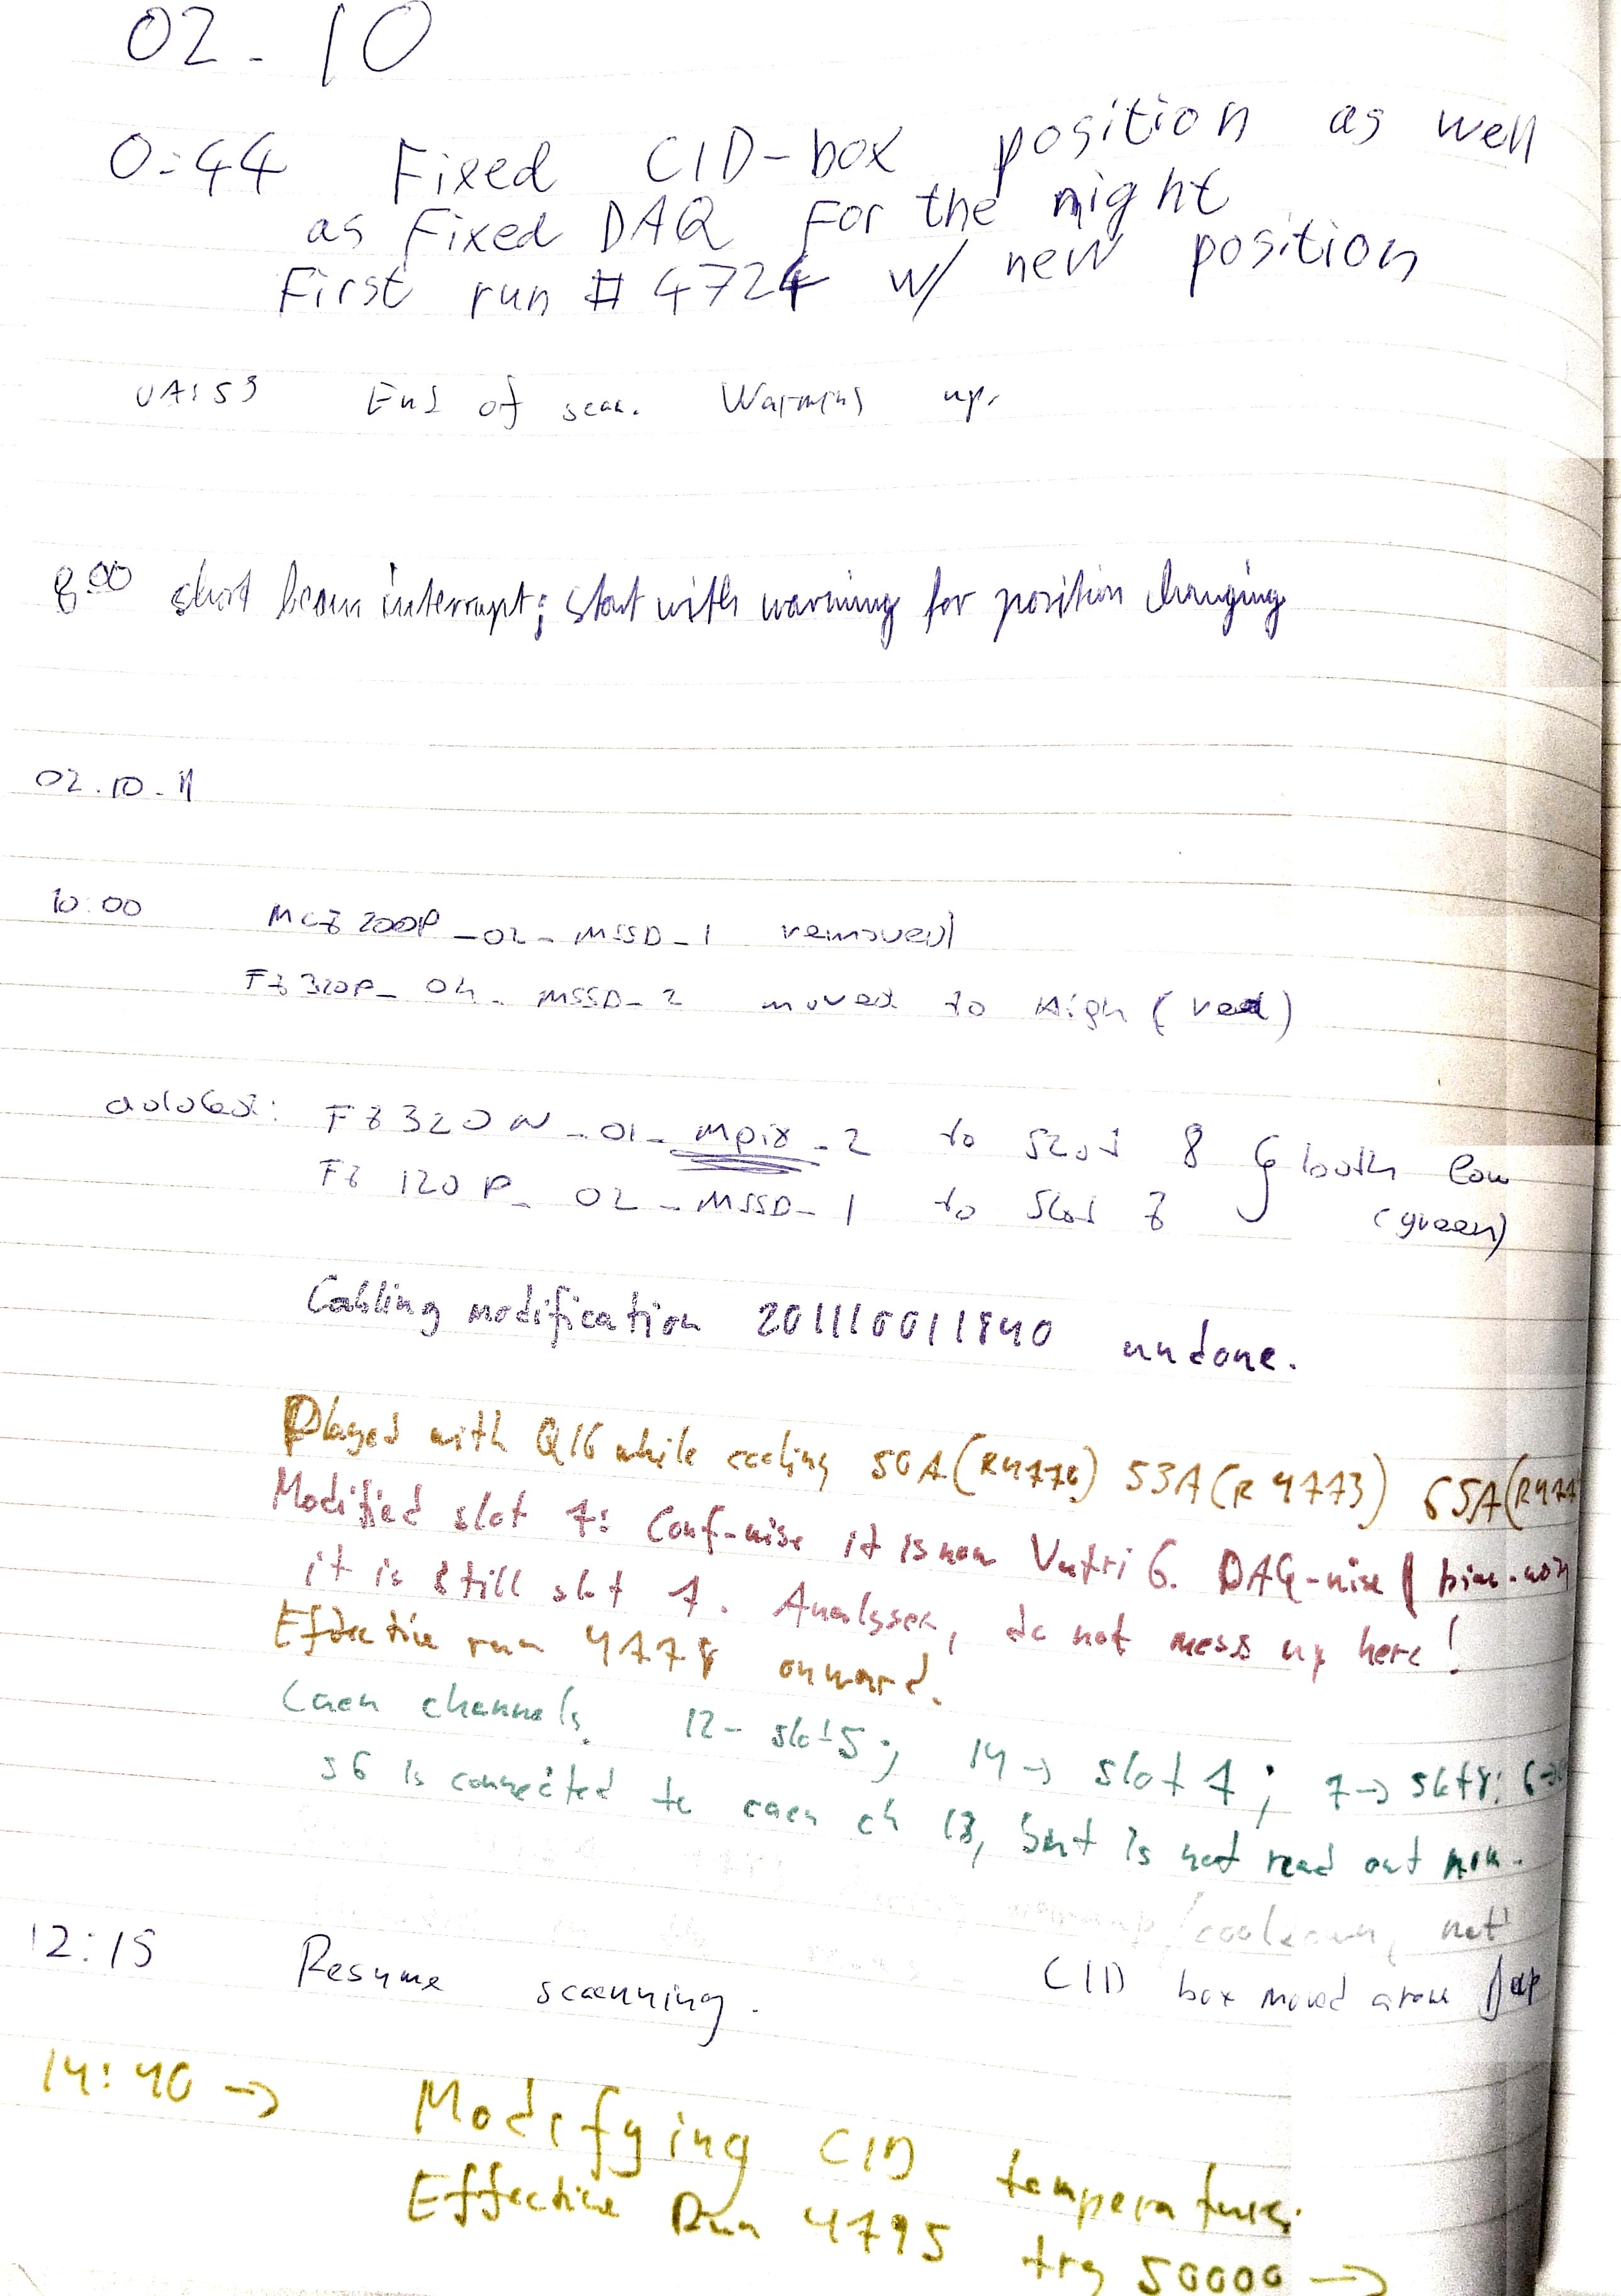 02-10
0:44 Fixed CID-box position as well
as Fixed DAQ For the night
First run # 4724 w/ new position
End of scan. Warming up.
8:00 short beam interrupt; start with warming for position changing
02.10.11
10:00 MCz200P_02_MSSD_1 removed
Fz320P_04_MSSD_2 moved to High (red)
added: Fz320N_01_Mpix_2 to Slot 8 } both low
Fz120P_02_MSSD_1 to Slot 7 (green)
Cabling modification 201110011840 undone.
Played with Q16 while cooling 50A (R4776) 53A (R4773) 65A (R477
Modified slot 7: Conf-wise it is now Vutri 6. DAQ-wise
it is still slot 7. Analysers, do not mess up here!
Effective run 4778 onward.
Caen channels. 12- slot 5; 14 → slot 4; 7 → slot 8;
s6 is connected to caen ch 13, but is not read out now.
cooldown, not
12:15 Resume scanning. CID box moved
14:40 → Modifying CID temperature.
Effective Run 4795 trg 50000 →